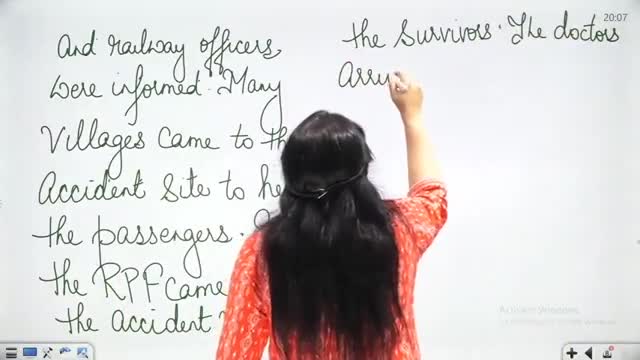 And railway officers
were informed. Many
Villages came to th
Accident Site to he
the passengers.
the RPF came
the accident
the Survivors. The doctors
arri
20:07
Activate Windows